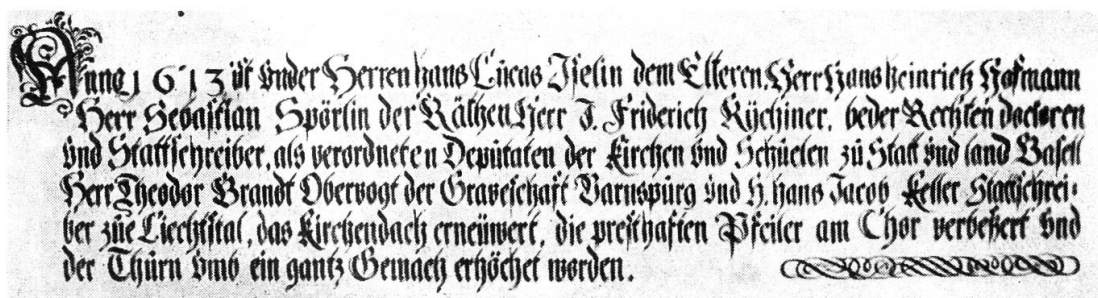 Anno 1613 ist vnder Herren hans Lucas Iselin dem Elteren, Herr Hans heinrich Hofmann
Herr Sebastian Spörlin der Räthen, Herr J. Friderich Rÿchiner, beder Rechten doctoren
vnd Stattschreiber, als verordneten Deputaten der Kirchen vnd Schuelen zů Statt vnd land Basell
Herr Theodor Brandt Obervogt der Graveschaft Varnspurg vnd H. hans Jacob Keller Stattschrei-
ber zůe Liechtstal, das Kirchendach erneüwert, die presthaften Pfeiler am Chor verbeßert vnd
der Thurn vmb ein gantz Gemach erhöchet worden.